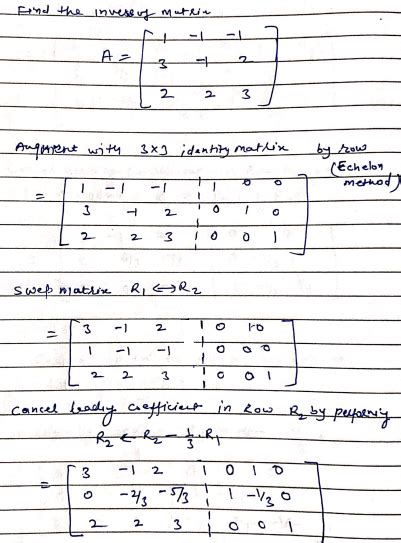 Find the inverse of matrix
A = [ 1 -1 -1
3 -1 2
2 2 3 ]
Augment with 3x3 identity matrix by row
(Echelon method)
= [ 1 -1 -1 ¦ 1 0 0
3 -1 2 ¦ 0 1 0
2 2 3 ¦ 0 0 1 ]
swep matrix R₁ ↔ R₂
= [ 3 -1 2 ¦ 0 1 0
1 -1 -1 ¦ 0 0 0
2 2 3 ¦ 0 0 1 ]
cancel leady coefficient in row R₂ by performing
R₂ ← R₂ - 1/3 . R₁
= [ 3 -1 2 ¦ 0 1 0
0 -2/3 -5/3 ¦ 1 -1/3 0
2 2 3 ¦ 0 0 1 ]